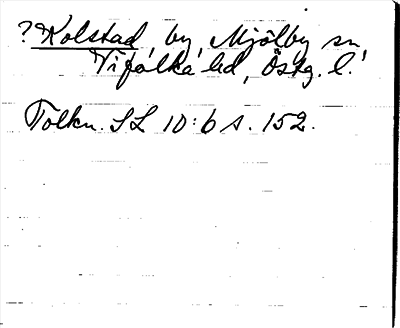 ?Kolstad, by, Mjölby sn,
Vifolka hd, Östg. l.
Tolkn. SL 10:6 s. 152.